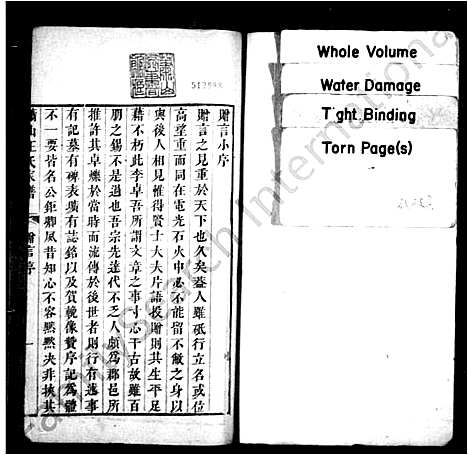 贈言小序
贈言之見重於天下也久矣蓋人雖砥行立名或位
高望重而同在電光石火中必不能留不敝之身以
與後人相見惟得賢士大夫片語投贈則其生平足
藉不朽此李卓吾所謂文章之事寸心千古故雖百
朋之錫不是過也吾宗先達代不乏人頗為郡邑所
推許其卓爍於當時而流傳於後世者則行有述事
有記墓有碑表壙有誌銘以及賀輓像贊序記為體
不一要皆名公鉅卿夙昔知心不容黙黙夫非挾其
山王氏家譜
贈言序
一
512888
Whole Volume
Water Damage
T ght Binding
Torn Page(s)
FamilySearch International